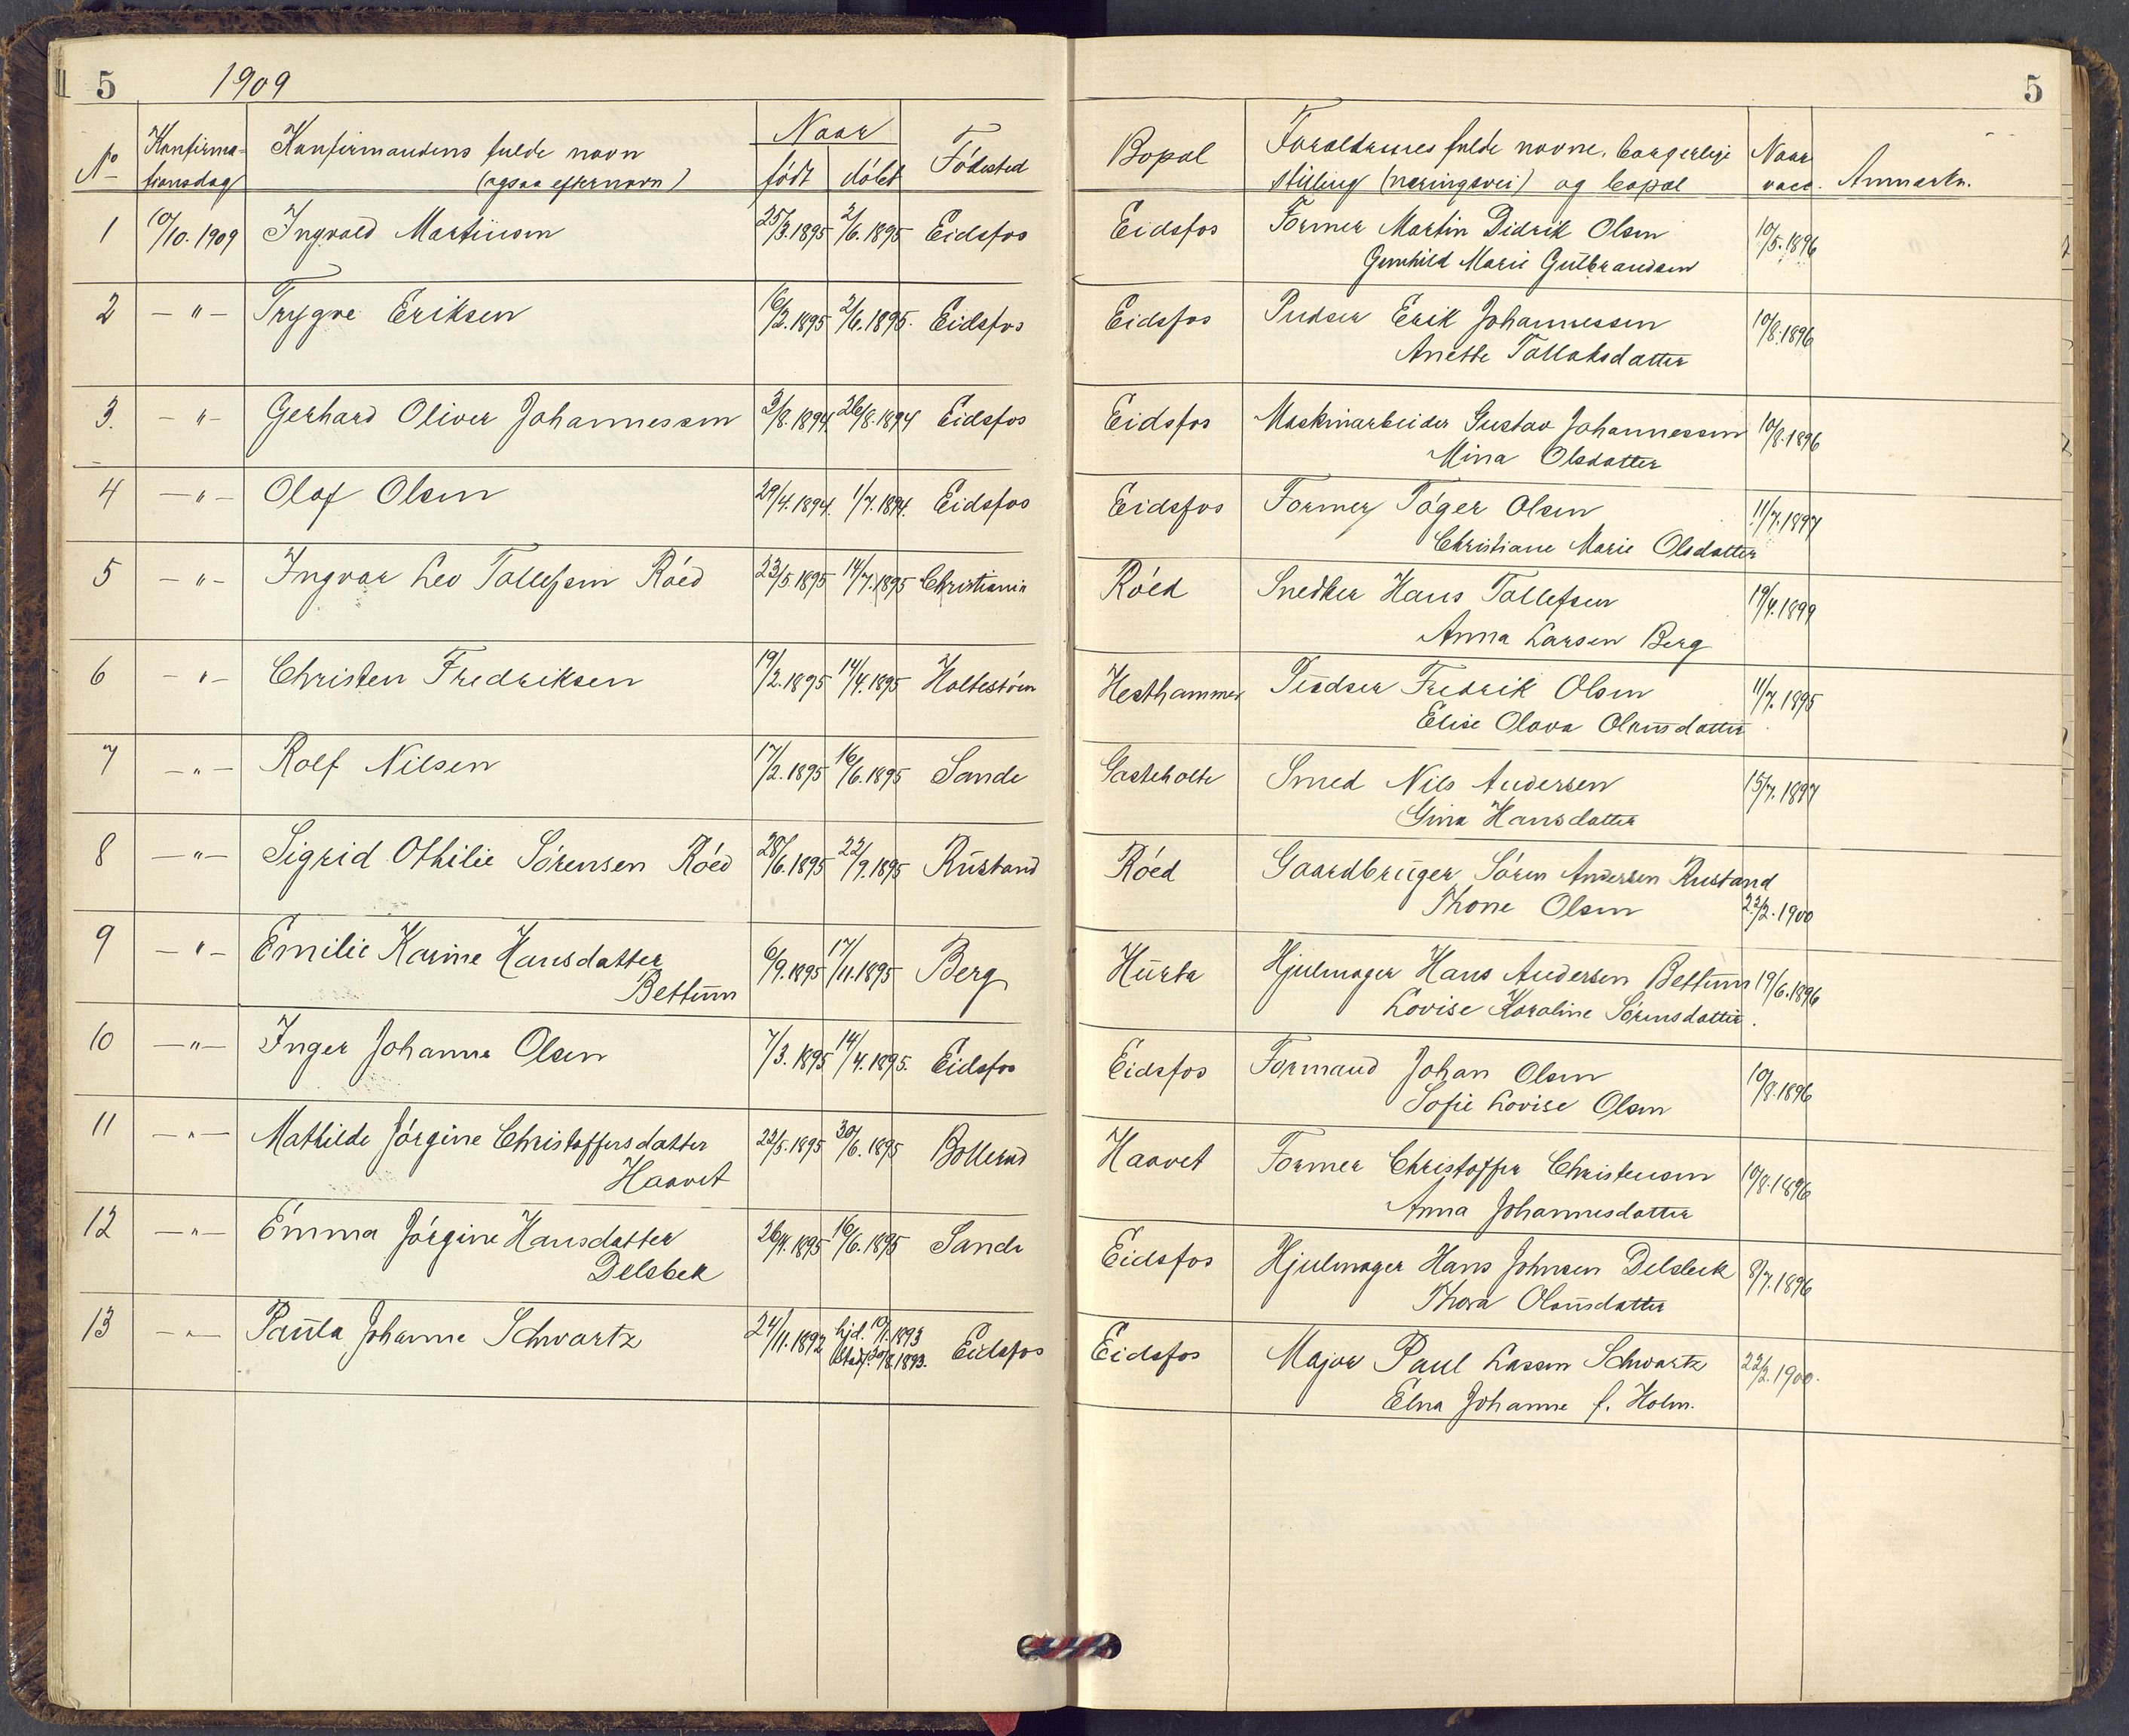 5 1909
No Konfirma- Konfirmandens fulde navn Naar Fødested
tionsdag (ogsaa efternavn) født døbt
1 10/10. 1909 Ingvald Martinsen 25/3.1895 2/6.1895 Eidsfos
2 — " — Trygve Eriksen 16/2.1895 2/6.1895. Eidsfos
3. — " — Gerhard Oliver Johannessen 3/8.1894 26/8.1894 Eidsfos
4 — " — Olaf Olsen 29/4.1894. 1/7.1894. Eidsfos
5 — " — Ingvar Leo Tollefsen Røed 23/5 1895 14/7.1895 Christiania
6 — " — Christen Fredriksen 19/2.1895 14/4.1895 Holtestøen
7 — " — Rolf Nilsen 17/2.1895 16/6.1895 Sande
8 — " — Sigrid Othilie Sørensen Røed 28/6.1895 22/9.1895 Rustand
9 — " — Emilie Karine Hansdatter 6/9.1895 17/11.1895 Berg
Bettum
10 — " — Inger Johanne Olsen 7/3.1895 14/4.1895. Eidsfos
11 — " — Mathilde Jørgine Christoffersdatter 22/5.1895 30/6.1895 Bollerud
Haavet
12 — " — Emma Jørgine Hansdatter 26/4.1895 16/6.1895 Sande
Delebek
13 — " — Paula Johanne Schwartz 24/11.1892 hjd. 10/1.1893 Eidsfos
Stadf. 20/8.1893.
5
Bopæl Forældrenes fulde navne, borgerlige Naar
stilling (næringsvei) og bopæl vacc. Anmærkn.
Eidsfos Former Martin Didrik Olsen 10/5.1896
Gunhild Marie Gulbrandsen
Eidsfos Pudser Erik Johannessen 10/8.1896
Anette Tollaksdatter
Eidsfos Maskinarbeider Gustav Johannessen 10/8.1896
Mina Olsdatter
Eidsfos Former Tøger Olsen 11/7.1897
Christiane Marie Olsdatter
Røed Snedker Hans Tollefsen 19/4.1899
Anna Larsen Berg
Hesthammer Pudser Fredrik Olsen 11/7.1895
Elise Olava Olausdatter
Gasteholte Smed Nils Andersen 15/7.1897
Gina Hansdatter
Røed Gaardbruger Søren Andersen Rustand
Thone Olsen 22/2.1900
Hurta Hjulmager Hans Andersen Bettum 19/6.1896
Lovise Karoline Sørensdatter.
Eidsfos Formand Johan Olsen 10/8.1896
Sofie Lovise Olsen
Haavet Former Christoffer Christensen 10/8.1896
Anna Johannesdatter
Eidsfos Hjulmager Hans Johnsen Delebek 8/7.1896
Thora Olausdatter
Eidsfos Major Paul Lassen Schwartz 22/2.1900.
Elna Johanne f. Holm.